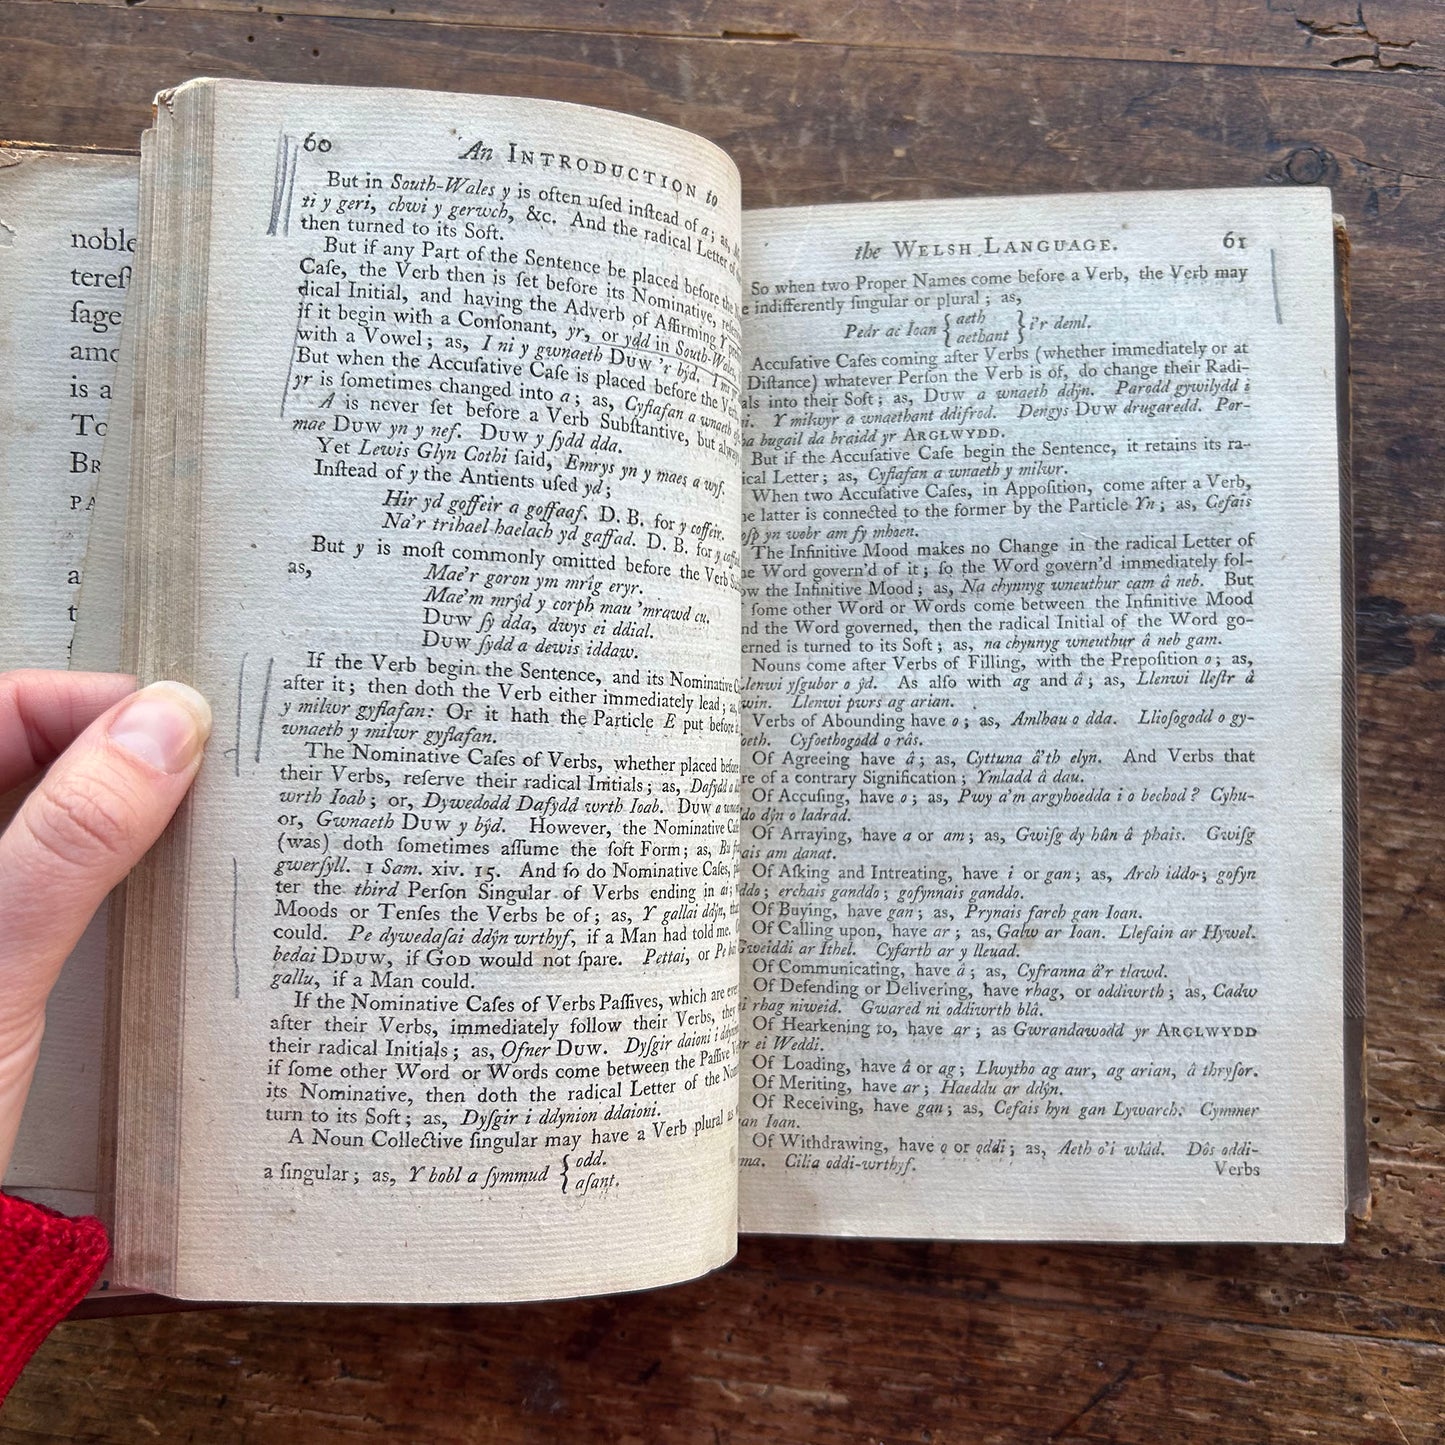 noble
tereſt
ſage
amo
is a
To
Br
PA
a
t
60 An INTRODUCTION to
But in South-Wales y is often uſed inſtead of a; as,
ti y geri, chwi y gerwch, &c. And the radical Letter
then turned to its Soft.
But if any Part of the Sentence be placed before the
Caſe, the Verb then is ſet before its Nominative,
dical Initial, and having the Adverb of Affirming Y
if it begin with a Conſonant, yr, or ydd in South-Wales,
with a Vowel; as, I ni y gwnaeth DUW 'r bŷd.
But when the Accuſative Caſe is placed before the Verb
yr is ſometimes changed into a; as, Cyflafan a wnaeth
A is never ſet before a Verb Subſtantive, but
mae DUW yn y nef. DUW y ſydd dda.
Yet Lewis Glyn Cothi ſaid, Emrys yn y maes a wyſ.
Inſtead of y the Antients uſed yd;
Hir yd goffeir a goffaaf. D. B. for y coffeir.
Na'r trihael haelach yd gaffad. D. B. for y
But y is moſt commonly omitted before the Verb
as, Mae'r goron ym mrîg eryr.
Mae'm mrŷd y corph mau 'mrawd cu.
DUW ſy dda, dwys ei ddial.
DUW ſydd a dewis iddaw.
If the Verb begin the Sentence, and its Nominative
after it; then doth the Verb either immediately lead;
y milwr gyflafan: Or it hath the Particle E put before
wnaeth y milwr gyflafan.
The Nominative Caſes of Verbs, whether placed before
their Verbs, reſerve their radical Initials; as, Dafydd
wrth Ioab; or, Dywedodd Dafydd wrth Ioab. DUW a
or, Gwnaeth DUW y bŷd. However, the Nominative
(was) doth ſometimes aſſume the ſoft Form; as,
gwerſyll. 1 Sam. xiv. 15. And ſo do Nominative Caſes,
ter the third Perſon Singular of Verbs ending in ai;
Moods or Tenſes the Verbs be of; as, Y gallai ddŷn,
could. Pe dywedaſai ddŷn wrthyf, if a Man had told me.
bedai DDUW, if GOD would not ſpare. Pettai, or Pe
gallu, if a Man could.
If the Nominative Caſes of Verbs Paſſives, which are
after their Verbs, immediately follow their Verbs, they
their radical Initials; as, Ofner DUW. Dyſgir daioni i
if ſome other Word or Words come between the Paſſive
its Nominative, then doth the radical Letter of the
turn to its Soft; as, Dyſgir i ddynion ddaioni.
A Noun Collective ſingular may have a Verb plural as
a ſingular; as, Y bobl a ſymmud { odd.
aſant.
the WELSH LANGUAGE. 61
So when two Proper Names come before a Verb, the Verb may
indifferently ſingular or plural; as,
Pedr ac Ioan { aeth
aethant } i'r deml.
Accuſative Caſes coming after Verbs (whether immediately or at
Diſtance) whatever Perſon the Verb is of, do change their Radi-
als into their Soft; as, DUW a wnaeth ddŷn. Parodd gywilydd i
ni. Y milwyr a wnaethant ddifrod. Dengys DUW drugaredd. Por-
ha bugail da braidd yr ARGLWYDD.
But if the Accuſative Caſe begin the Sentence, it retains its ra-
ical Letter; as, Cyflafan a wnaeth y milwr.
When two Accuſative Caſes, in Appoſition, come after a Verb,
he latter is connected to the former by the Particle Yn; as, Cefais
oſp yn wobr am fy mhoen.
The Infinitive Mood makes no Change in the radical Letter of
he Word govern'd of it; ſo the Word govern'd immediately fol-
ow the Infinitive Mood; as, Na chynnyg wneuthur cam â neb. But
ſome other Word or Words come between the Infinitive Mood
nd the Word governed, then the radical Initial of the Word go-
erned is turned to its Soft; as, na chynnyg wneuthur â neb gam.
Nouns come after Verbs of Filling, with the Prepoſition o; as,
Llenwi yſgubor o ŷd. As alſo with ag and â; as, Llenwi lleſtr â
win. Llenwi pwrs ag arian.
Verbs of Abounding have o; as, Amlhau o dda. Llioſogodd o gy-
oeth. Cyfoethogodd o râs.
Of Agreeing have â; as, Cyttuna â'th elyn. And Verbs that
re of a contrary Signification; Ymladd â dau.
Of Accuſing, have o; as, Pwy a'm argyhoedda i o bechod? Cyhu-
do dŷn o ladrad.
Of Arraying, have a or am; as, Gwiſg dy hûn â phais. Gwiſg
ais am danat.
Of Aſking and Intreating, have i or gan; as, Arch iddo; gofyn
ddo; erchais ganddo; gofynnais ganddo.
Of Buying, have gan; as, Prynais farch gan Ioan.
Of Calling upon, have ar; as, Galw ar Ioan. Llefain ar Hywel.
Gweiddi ar Ithel. Cyfarth ar y lleuad.
Of Communicating, have â; as, Cyfranna â'r tlawd.
Of Defending or Delivering, have rhag, or oddiwrth; as, Cadw
i rhag niweid. Gwared ni oddiwrth blâ.
Of Hearkening to, have ar; as Gwrandawodd yr ARGLWYDD
r ei Weddi.
Of Loading, have â or ag; Llwytho ag aur, ag arian, â thryſor.
Of Meriting, have ar; Haeddu ar ddŷn.
Of Receiving, have gan; as, Cefais hyn gan Lywarch. Cymmer
an Ioan.
Of Withdrawing, have o or oddi; as, Aeth o'i wlâd. Dôs oddi-
ma. Cilia oddi-wrthyf.
Verbs